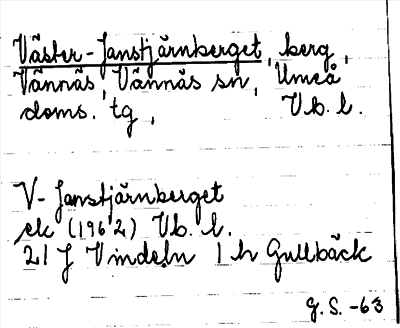 Väster-Janstjärnberget, berg,
Vännäs, Vännäs sn, Umeå
doms. tg, Vb. l.
V-Janstjärnberget
ek (1962) Vb. l.
21 J Vindeln 1 h Gullbäck
G. S. -63